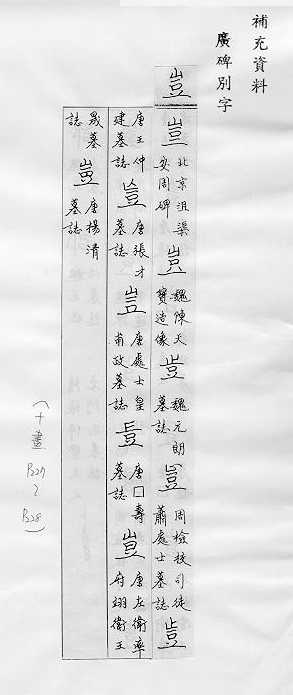 補充資料
廣碑別字
豈
豈 北京沮渠安周碑 豈 魏陳天寶造像 豈 魏元朗墓誌 豈 周檢校司徒蕭處士墓誌 豈
唐王仲建墓誌 豈 唐張才墓誌 豈 唐處士皇甫政墓誌 豈 唐□壽墓誌 豈 唐左衛率府翊衛王
晟墓誌 豈 唐楊清墓誌
(十畫 B27~B28)